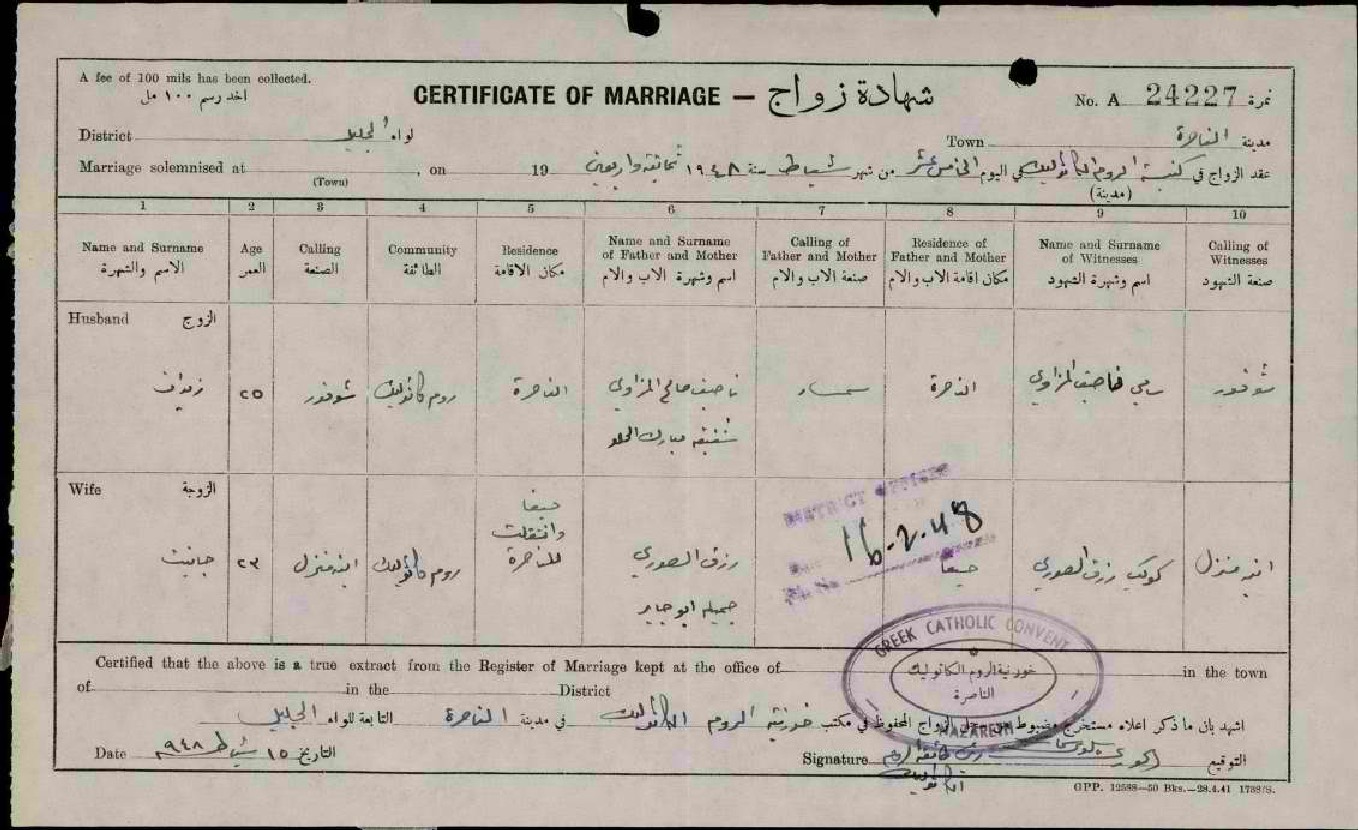 A fee of 100 mils has been collected.
اخذ رسم ١٠٠ مل
CERTIFICATE OF MARRIAGE — شهادة زواج
No. A 24227 نمرة
District لواء الجليل
Town مدينة الناصرة
Marriage solemnised at , on 19
(Town)
عقد الزواج في كنيسة الروم الكاثوليك في اليوم الخامس عشر من شهر شباط سنة ١٩٤٨ ثمانية واربعين
(مدينة)
1 2 3 4 5 6 7 8 9 10
Name and Surname Age Calling Community Residence Name and Surname of Father and Mother Calling of Father and Mother Residence of Father and Mother Name and Surname of Witnesses Calling of Witnesses
الاسم والشهرة العمر الصنعة الطائفة مكان الاقامة اسم وشهرة الاب والام صنعة الاب والام مكان اقامة الاب والام اسم وشهرة الشهود صنعة الشهود
Husband الزوج
زيدان ٢٥ شوفور روم كاثوليك الناصرة ناصيف صالح المزاوي الناصرة سامي ناصيف المزاوي شوفور
شفيقه مبارك الحلو
Wife الزوجة
جانيت ٢٣ ابنة منزل روم كاثوليك حيفا
وانتقلت
للناصرة
رزق الصوري حيفا كوكب رزق الصوري ابنة منزل
جميله ابو جابر
DISTRICT OFFICER
16-2-48
Certified that the above is a true extract from the Register of Marriage kept at the office of in the town
of in the District
GREEK CATHOLIC CONVENT
خورنية الروم الكاثوليك
الناصرة
NAZARETH
اشهد بان ما ذكر اعلاه مستخرج ومضبوط من سجل الزواج المحفوظ في مكتب خورنية الروم الكاثوليك في مدينة الناصرة التابعة للواء الجليل
Date التاريخ ١٥ شباط ٩٤٨
Signature التوقيع
GPP. 12588—50 Bks.—28.4.41 1789/S.